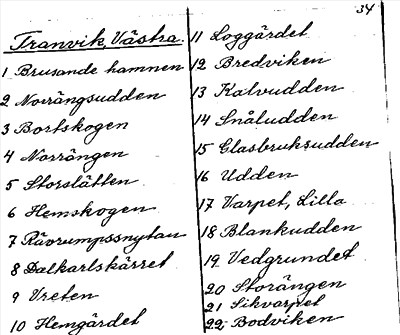 34
Tranvik, Västra.
1 Brusande hamnen
2 Norrängsudden
3 Bortskogen
4 Norrängen
5 Storslätten
6 Hemskogen
7 Rävrumpssnytan
8 Dalkarlskärret
9 Vreten
10 Hemgärdet
11 Loggärdet
12 Bredviken
13 Kalvudden
14 Snåludden
15 Glasbruksudden
16 Udden
17 Varpet, Lilla
18 Blankudden
19 Vedgrundet
20 Storängen
21 Sikvarpet
22; Bodviken